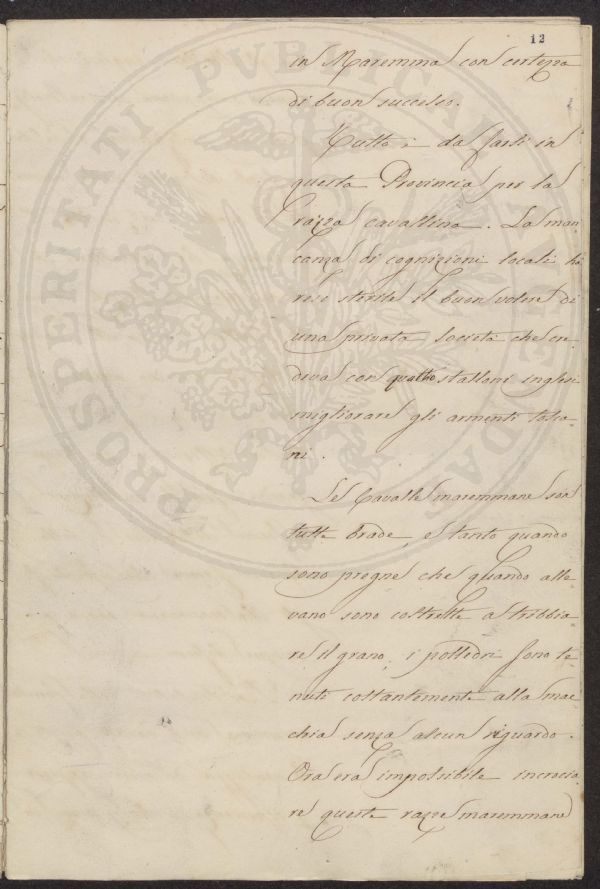 12
in Maremma con certezza
di buon successo.
Tutto è da farsi in
questa Provincia per la
razza cavallina. La man
canza di cognizioni locali ha
reso sterile il buon volere di
una privata società che cre
deva con quattro stalloni inglesi
migliorare gli armenti tosca
ni.
Le Cavalle maremmane son
tutte brade, e tanto quando
sono pregne che quando alle
vano sono costrette a tribbia
re il grano; i polledri sono te
nuti costantemente alla mac
chia senza alcun riguardo.
Ora era impossibile incrocia
re queste razze maremmane
PROSPERITATI PVBLICAE AVGENDAE